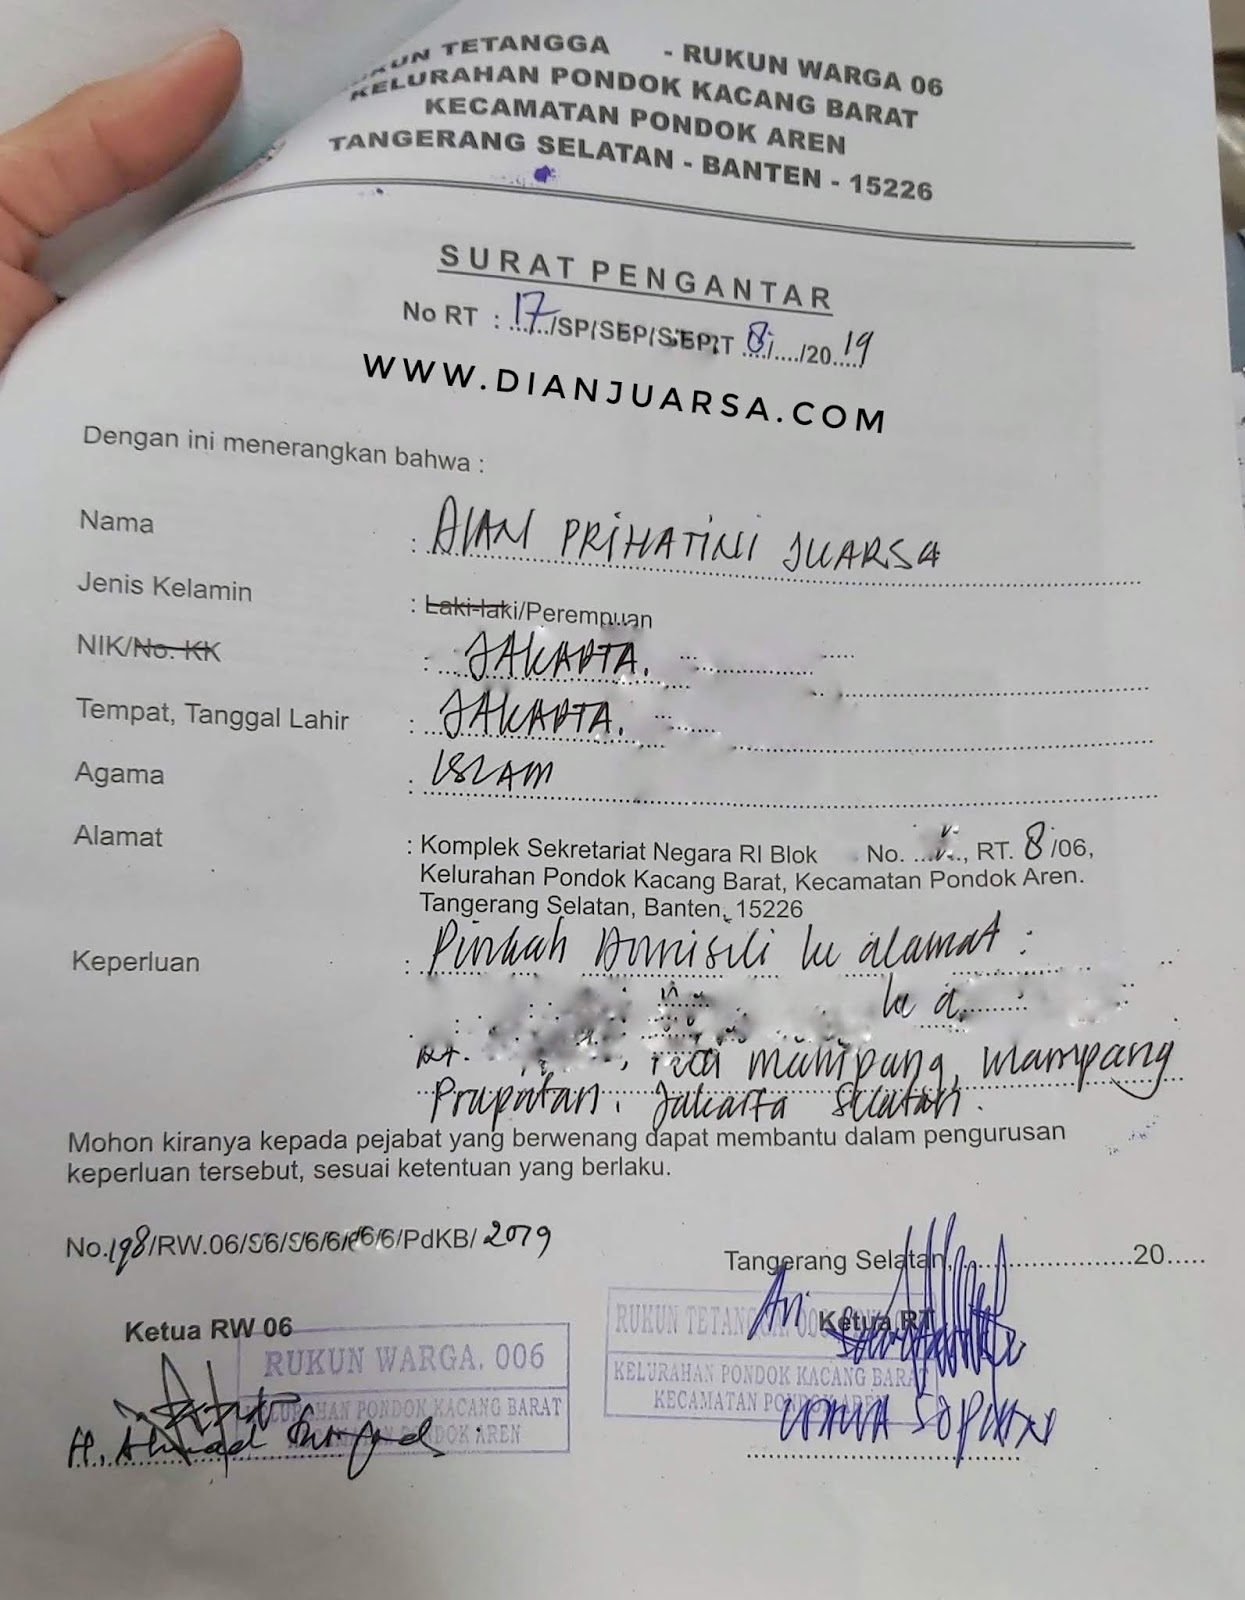 RUKUN TETANGGA - RUKUN WARGA 06
KELURAHAN PONDOK KACANG BARAT
KECAMATAN PONDOK AREN
TANGERANG SELATAN - BANTEN - 15226
SURAT PENGANTAR
No RT : 17/SP/ 8/..../2019
WWW.DIANJUARSA.COM
Dengan ini menerangkan bahwa :
Nama : DIAN PRIHATINI JUARSA
Jenis Kelamin : Laki-laki/Perempuan
NIK/No. KK : JAKARTA.
Tempat, Tanggal Lahir : JAKARTA.
Agama : ISLAM
Alamat : Komplek Sekretariat Negara RI Blok No. , RT. 8/06,
Kelurahan Pondok Kacang Barat, Kecamatan Pondok Aren.
Tangerang Selatan, Banten, 15226
Keperluan : Pindah Domisili ke alamat :
ke
Rt. , mampang, mampang
Prapatan, Jakarta Selatan.
Mohon kiranya kepada pejabat yang berwenang dapat membantu dalam pengurusan
keperluan tersebut, sesuai ketentuan yang berlaku.
No.198/RW.06/ /PdKB/2019
Tangerang Selatan, ....................20.....
Ketua RW 06
Ketua RT
RUKUN WARGA. 006
KELURAHAN PONDOK KACANG BARAT
PONDOK AREN
RUKUN TETANGGA
KELURAHAN PONDOK KACANG BARAT
KECAMATAN PONDOK AREN
H. Ahmad